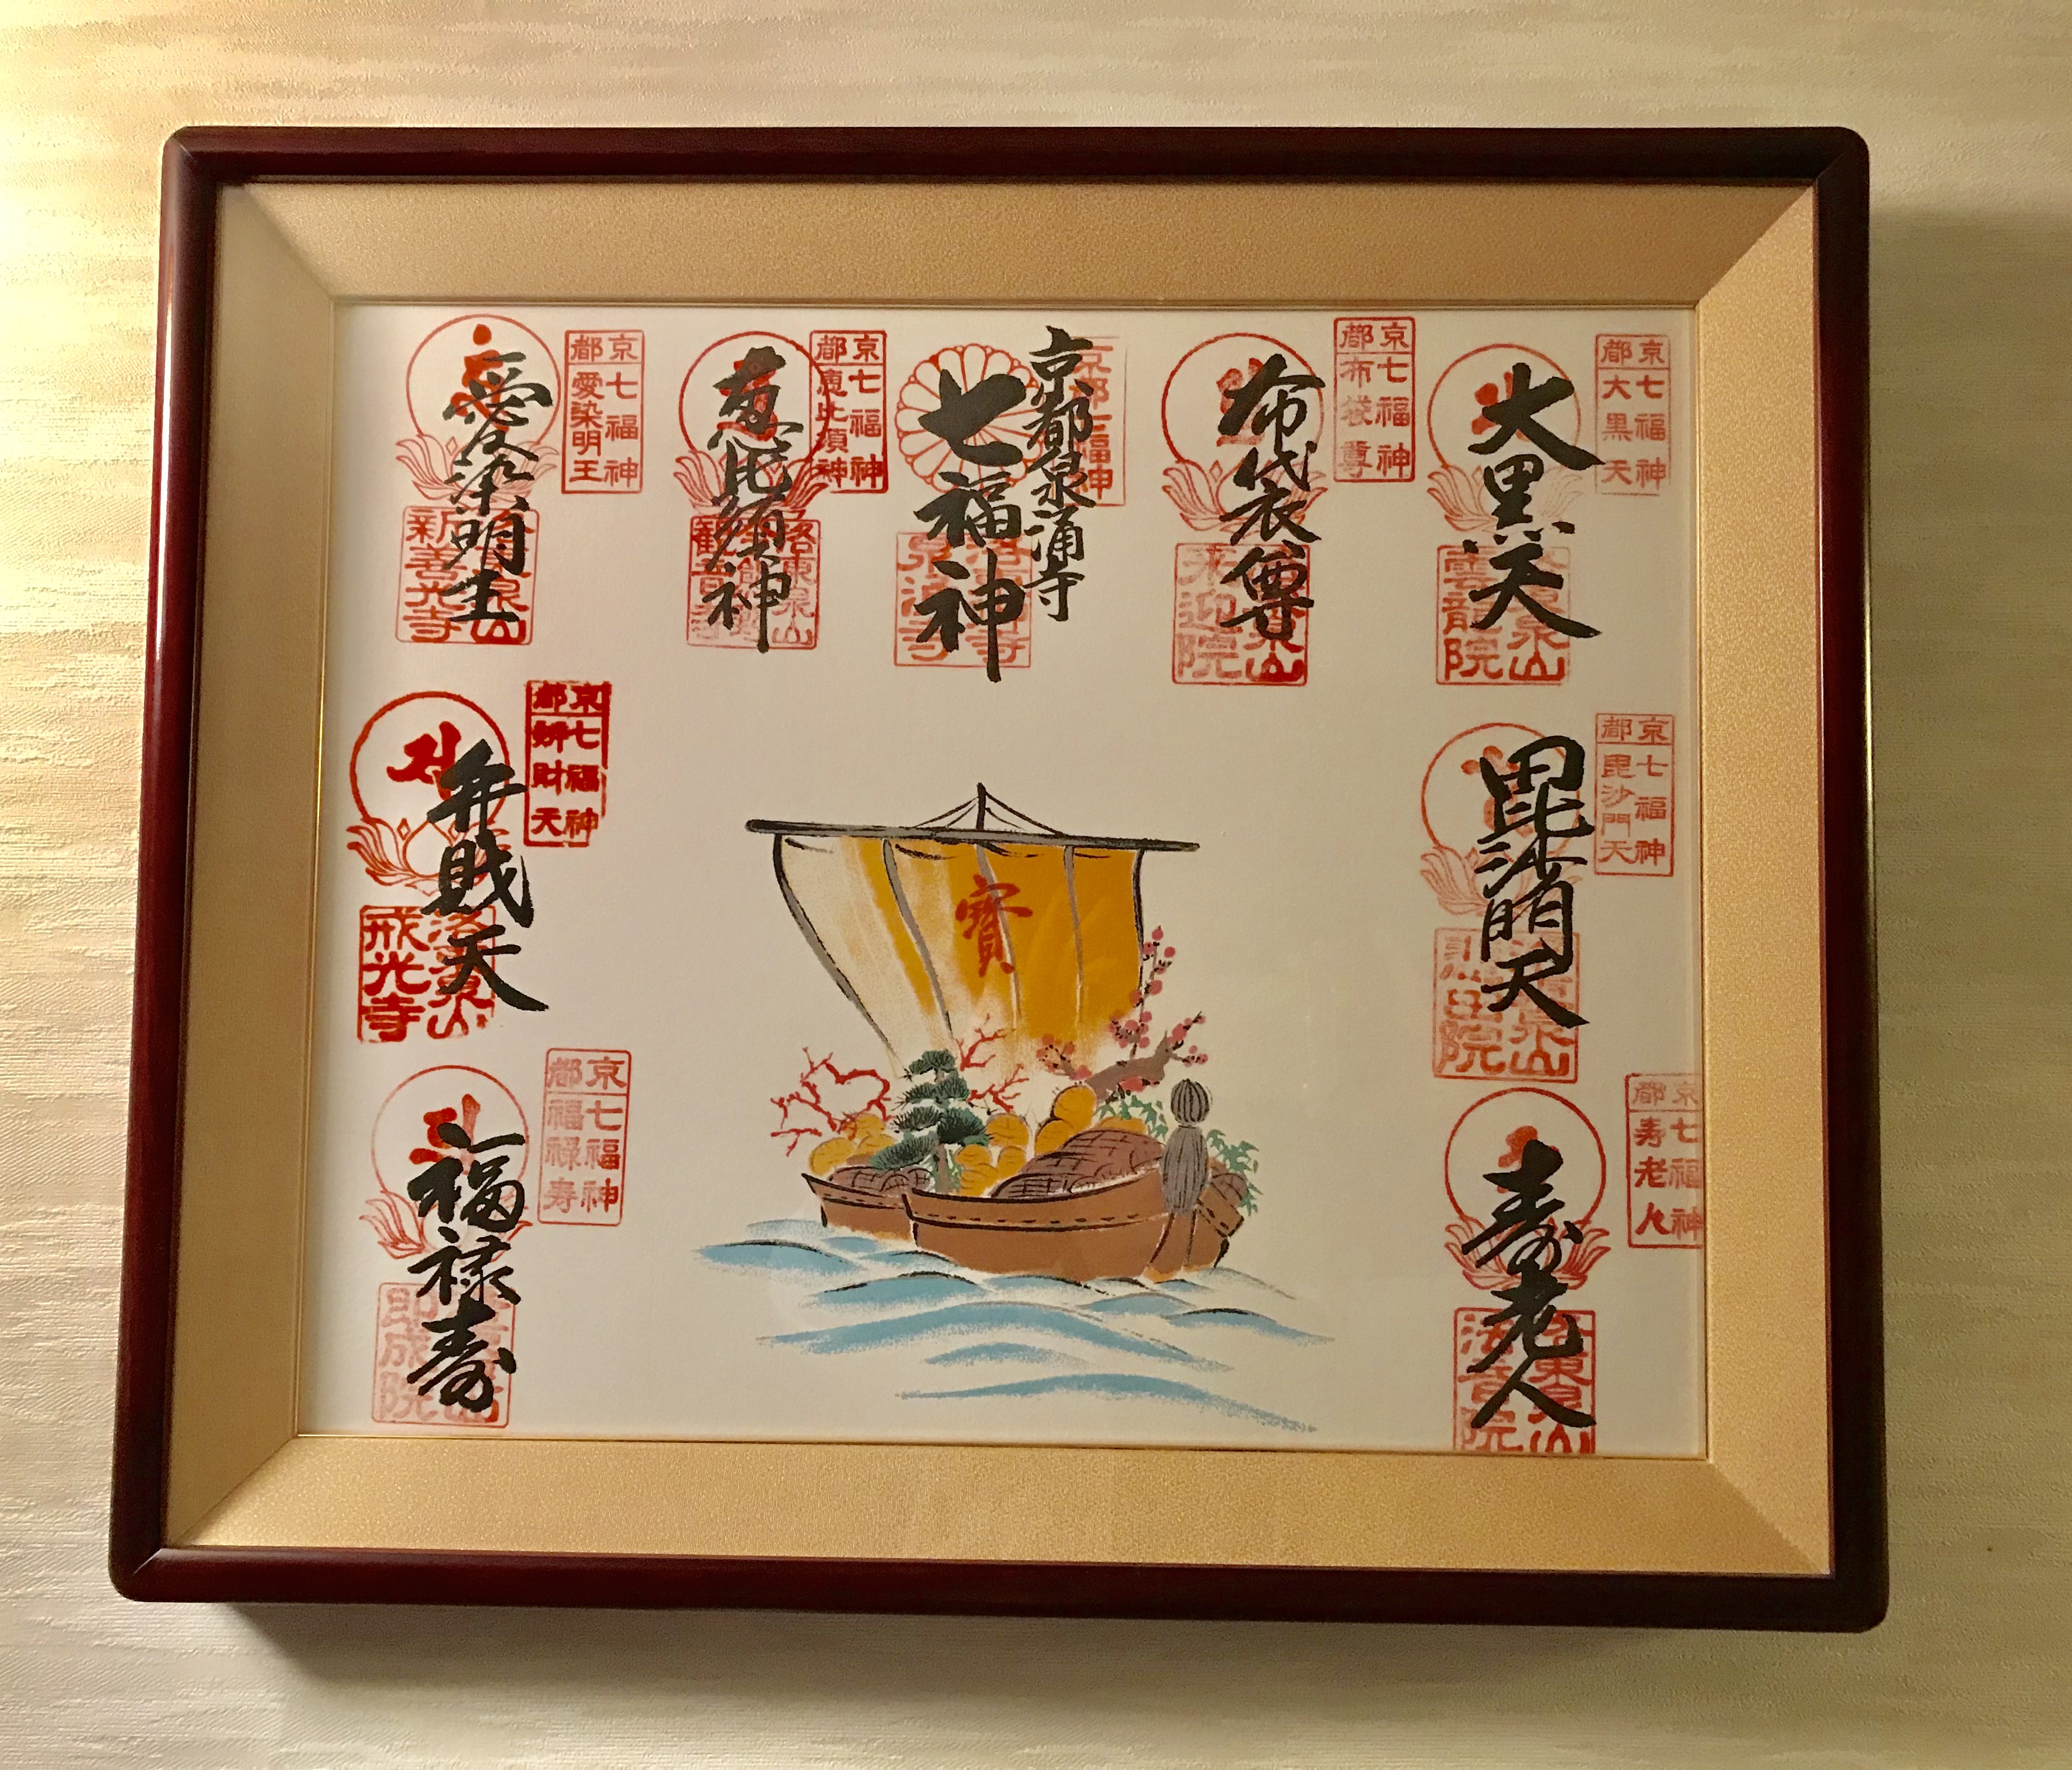 京都
七福神
大黒天
大黒天
泉山
雲龍院
京都
七福神
布袋尊
布袋尊
泉山
来迎院
京都七福神
京都泉涌寺
七福神
京都
七福神
恵比須神
恵比須神
洛東泉山
京都
七福神
愛染明王
愛染明王
泉山
新善光寺
京都
七福神
毘沙門天
毘沙門天
泉山
悲田院
京都
七福神
寿老人
寿老人
法音院
寶
京都
七福神
辨財天
弁財天
洛東泉山
戒光寺
京都
七福神
福禄寿
福禄寿
即成院